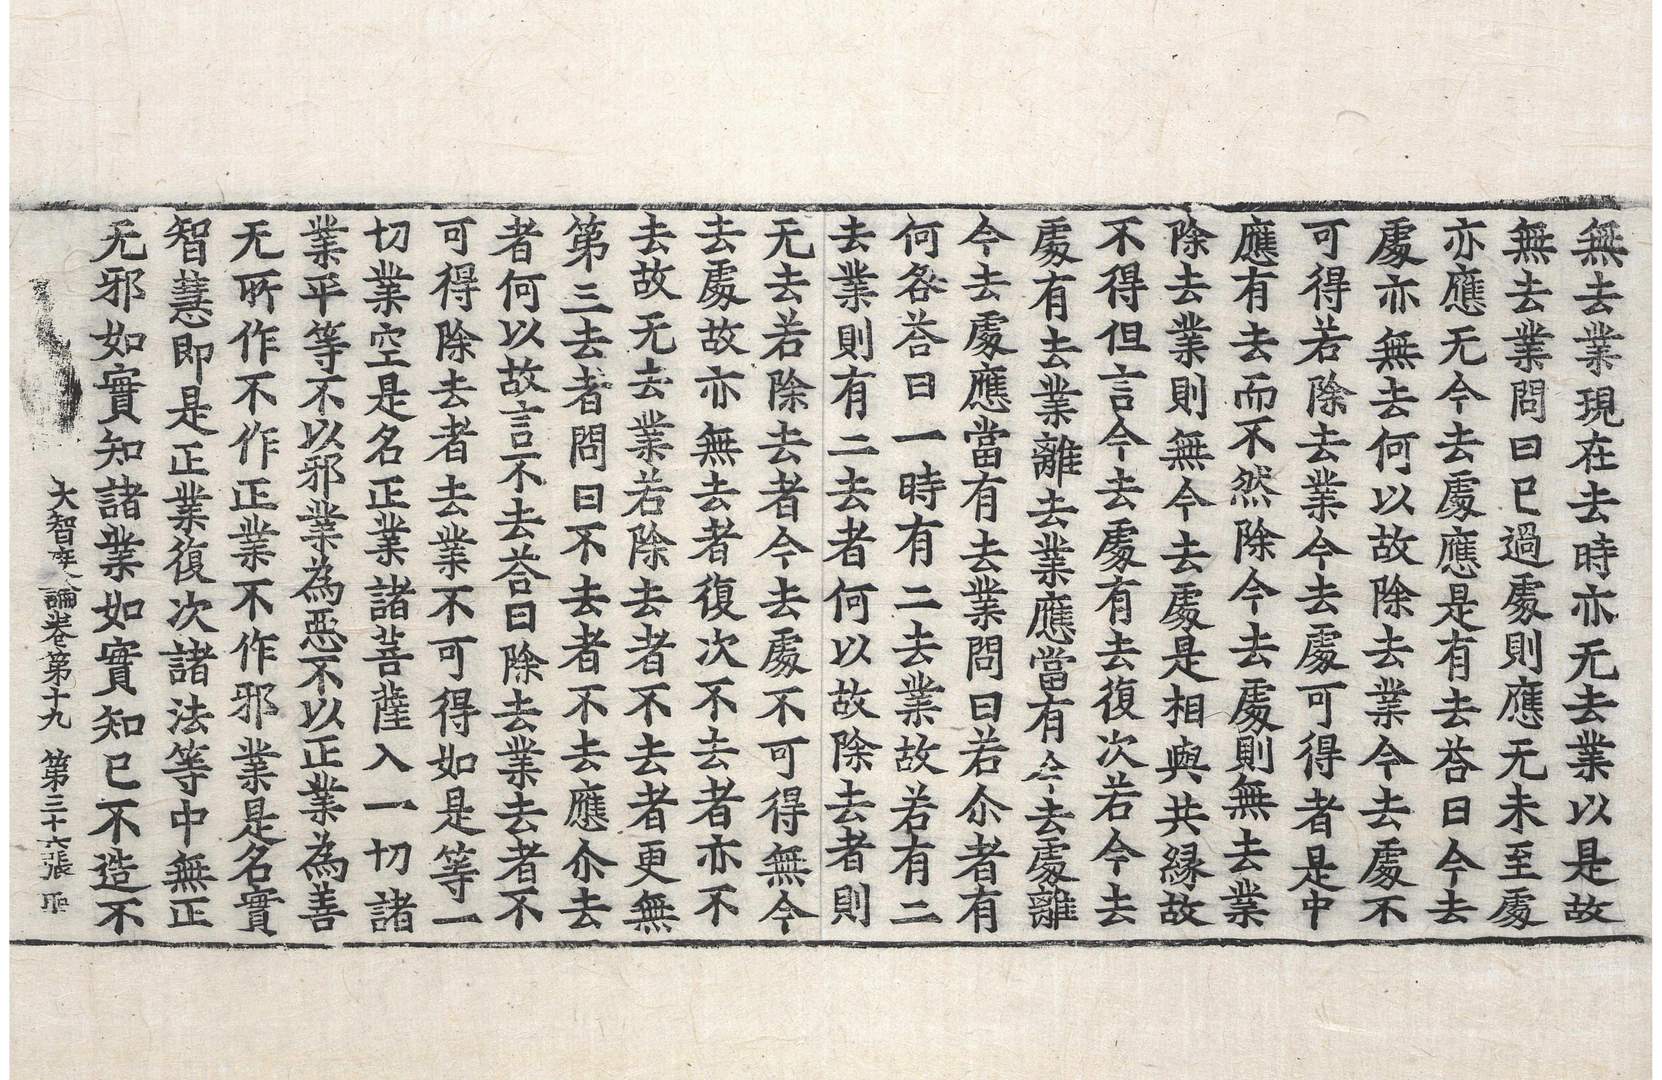 無去業現在去時亦无去業以是故
無去業問曰已過處則應无未至處
亦應无今去處應是有去荅曰今去
處亦無去何以故除去業今去處不
可得若除去業今去處可得者是中
應有去而不然除今去處則無去業
除去業則無今去處是相與共縁故
不得但言今去處有去復次若今去
處有去業離去業應當有今去處離
今去處應當有去業問曰若尒者有
何咎荅曰一時有二去業故若有二
去業則有二去者何以故除去者則
无去若除去者今去處不可得無今
去處故亦無去者復次不去者亦不
去故无去業若除去者不去者更無
第三去者問曰不去者不去應尒去
者何以故言不去荅曰除去業去者不
可得除去者去業不可得如是等一
切業空是名正業諸菩薩入一切諸
業平等不以邪業為惡不以正業為善
无所作不作正業不作邪業是名實
智慧即是正業復次諸法等中無正
无邪如實知諸業如實知已不造不
大智度論卷第十九　第三十六張